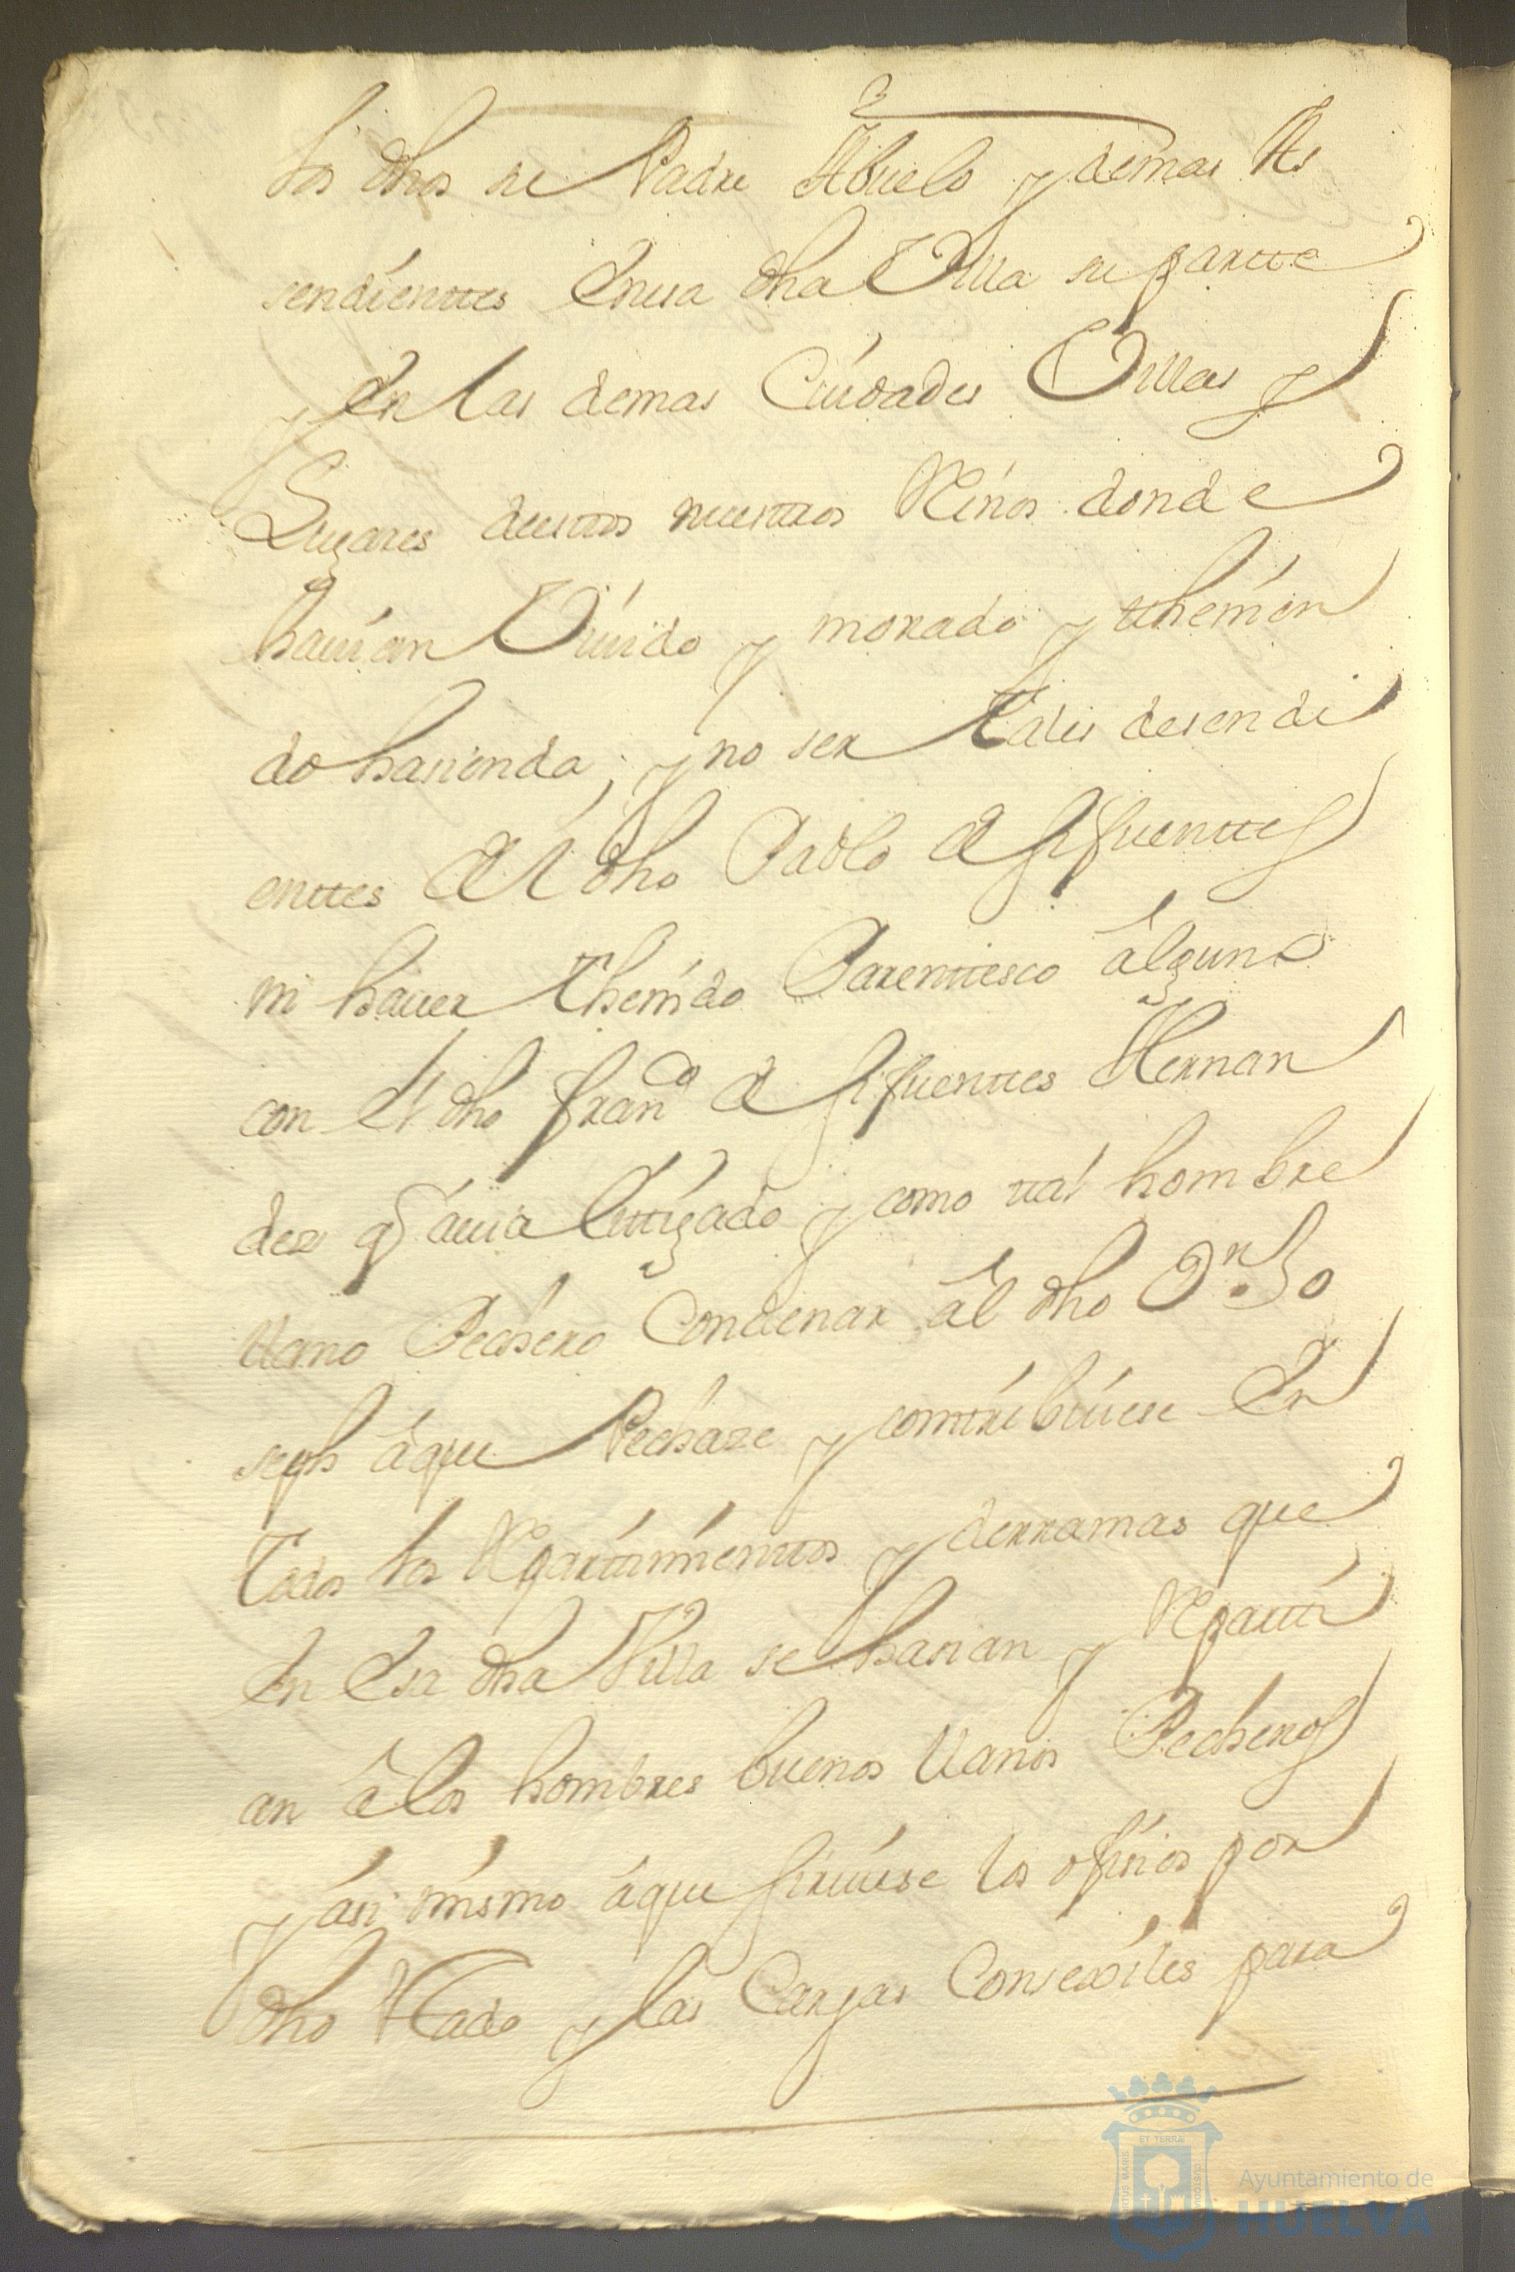 los dhos su Padre Abuelo y demas As
sendienttes Enesa dha Villa su partte
y En las demas Ciudades Villas y
Lugares deesttos nuesttros Reinos donde
hauian Viuido y morado y tthenien
do hasienda, y no ser Tales desendi
enttes del dho Pablo de Sifuenttes
ni hauer Thenido Parenttesco alguno
con el dho franco de Sifuenttes Hernan
dez q auia littigado y como ttal hombre
llano Pechero Condenar al dho Dn Jo
seph a que Pechaze y conttribuiese En
Todos los Reparttimienttos y derramas que
En Esa dha Villa se hasian y Repartti
an a los hombres buenos llanos Pecheros
y asi mismo a que siruiese los ofisios por
dho Esttado y las Cargas Consexiles para
Ayuntamiento de
HUELVA